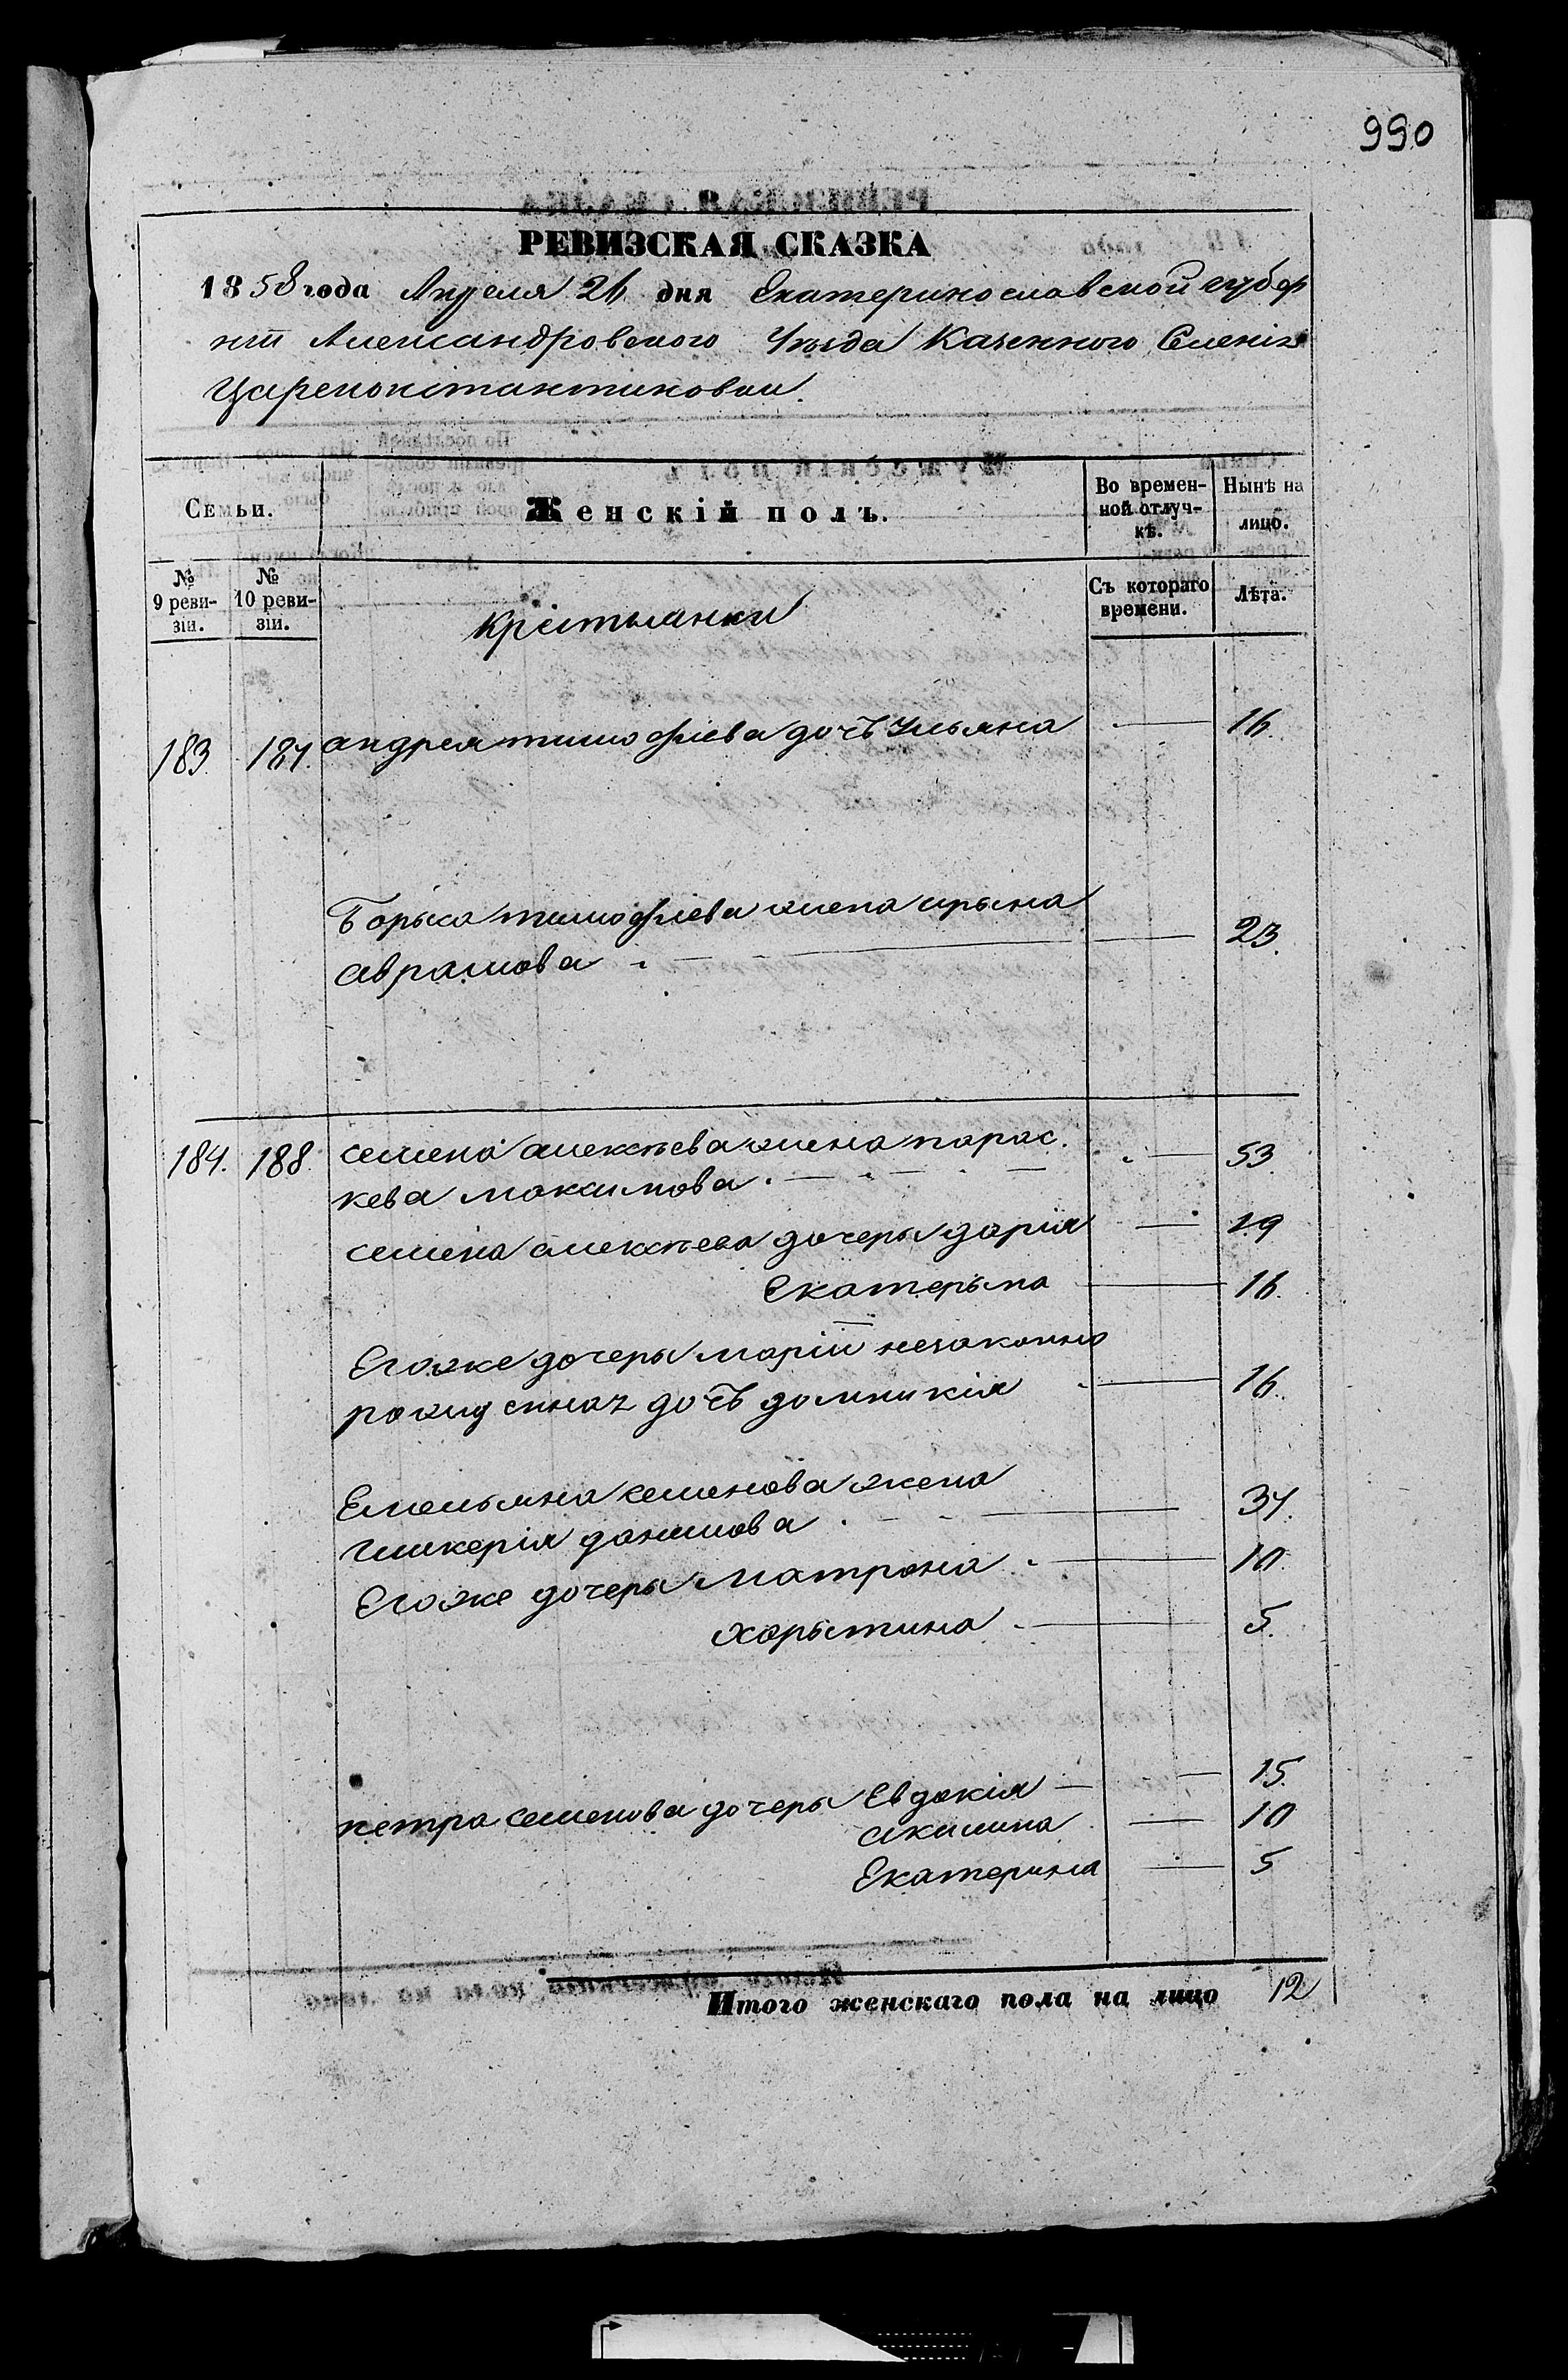 990
РЕВИЗСКАЯ СКАЗКА
1858 года Апреля 26 дня Екатеринославской губер
нiи Александровского Уѣзда Казенного Селенія
Цареконстантиновки.
Семьи.
Женскій полъ.
Во времен-
ной отлуч-
кѣ.
Нынѣ на
лицо.
№
9 реви-
зіи.
№
10 реви-
зіи.
Крестьянки
Съ котораго
времени.
Лѣта.
183. 187. андрея тимофѣева дочъ Ульяна — 16.
Борыса тимофѣева жена ирына
аврамова — 23.
184. 188. семена алексѣева жена парас.
кева максимова. — 53
семена алексѣева дочеры дарія — 19
Екатерына — 16.
Егоже дочеры маріи незаконно
рожденная дочъ домникія — 16.
Емельяна семенова жена
гликерія данилова. — 37.
Егоже дочеры Матрона — 10.
харытина — 5.
петра семенова дочеры Евдокія — 15.
акилина — 10
Екатерина — 5
Итого женскаго пола на лицо 12